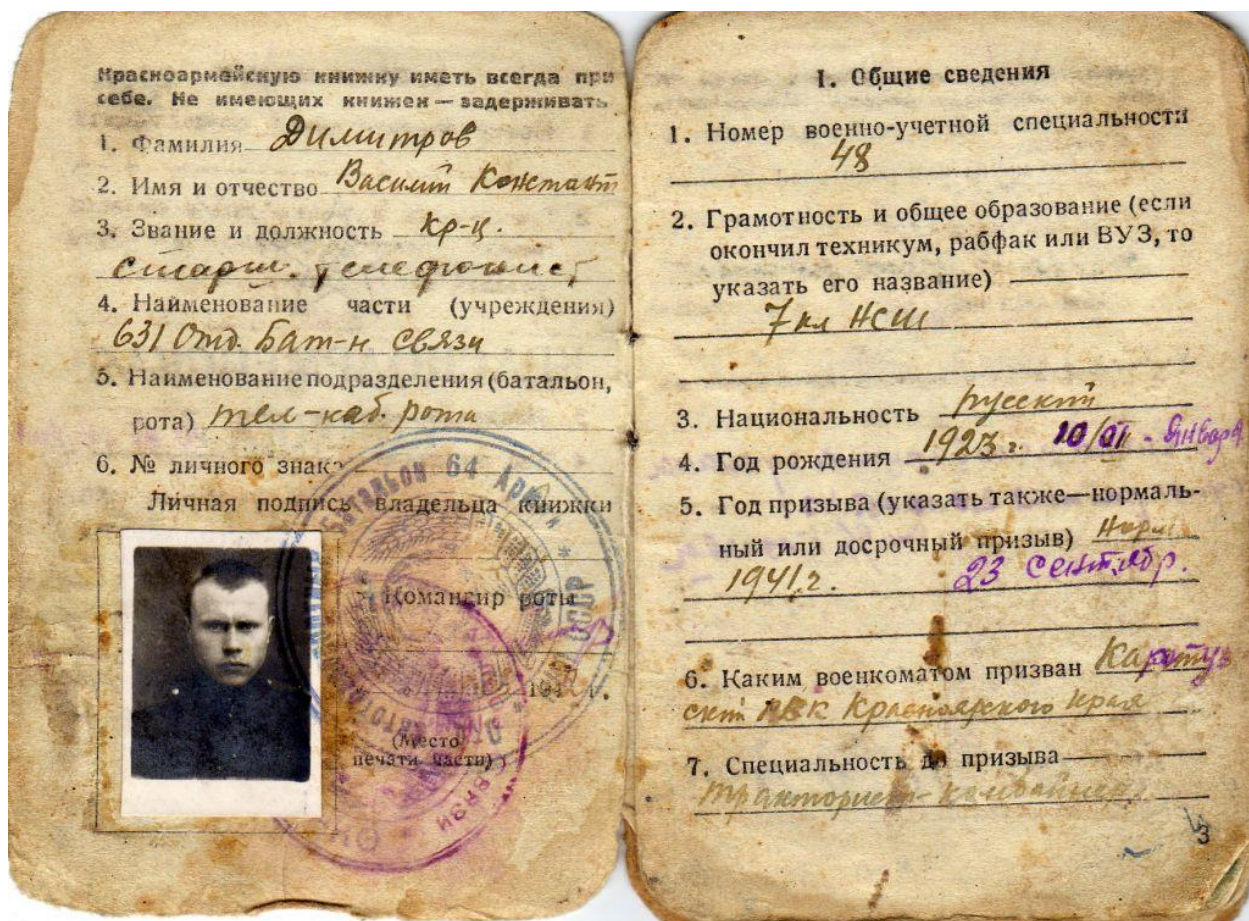 Красноармейскую книжку иметь всегда при
себе. Не имеющих книжек — задерживать
1. Фамилия Димитров
2. Имя и отчество Василий Констант
3. Звание и должность кр-ц.
старш. телефонист
4. Наименование части (учреждения)
631 Отд. Бат-н Связи
5. Наименование подразделения (батальон,
рота) тел-каб. рота
6. № личного знака
Личная подпись владельца книжки
Командир роты
194 г.
(Место
печати части)
64 Арм
СССР
1. Общие сведения
1. Номер военно-учетной специальности
48
2. Грамотность и общее образование (если
окончил техникум, рабфак или ВУЗ, то
указать его название)
7 кл НСШ
3. Национальность русский
4. Год рождения 1923 г. 10/01 - Января
5. Год призыва (указать также—нормаль-
ный или досрочный призыв) Норм
1941 г. 23 сентябр.
6. Каким военкоматом призван Каратуз
ский РВК Красноярского края
7. Специальность до призыва
тракторист-комбайнер
3